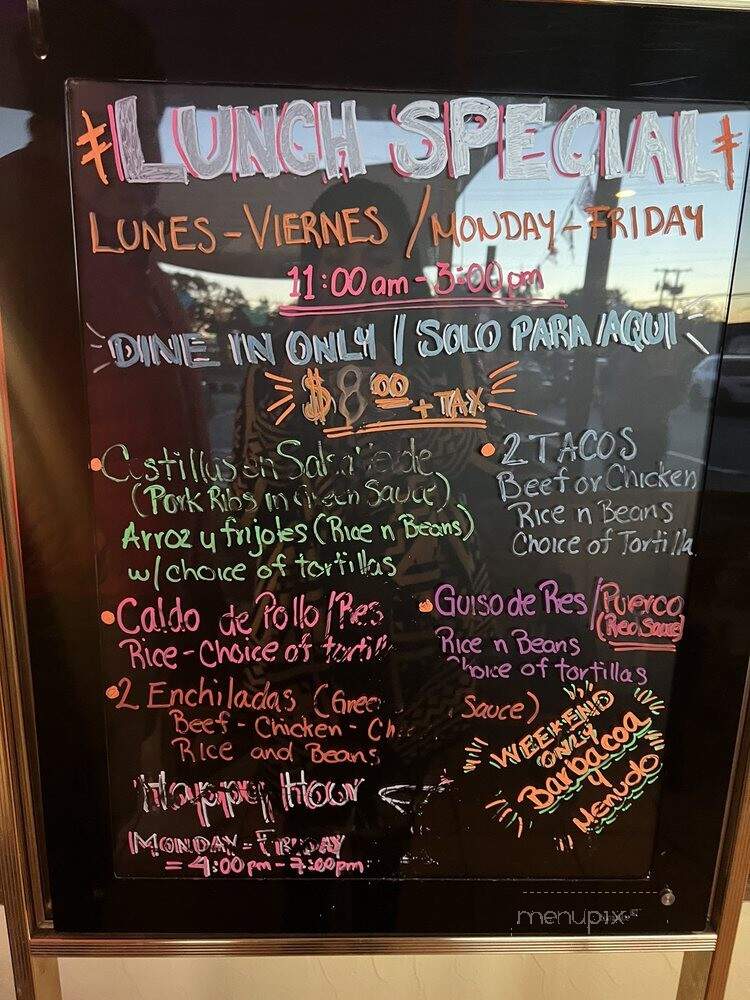 LUNCH SPECIAL
LUNES-VIERNES / MONDAY-FRIDAY
11:00 am - 3:00 pm
DINE IN ONLY / SOLO PARA AQUI
$8.00 + TAX
Costillas en Salsa Verde
(Pork Ribs in Green Sauce)
Arroz y frijoles (Rice n Beans)
w/choice of tortillas
2 TACOS
Beef or Chicken
Rice n Beans
Choice of Tortilla
Caldo de Pollo/Res
Rice-Choice of tortill
Guiso de Res / Puerco
(Red Sauce)
Rice n Beans
Choice of tortillas
2 Enchiladas (Gree Sauce)
Beef - Chicken - Ch
Rice and Beans
WEEKEND
ONLY
Barbacoa
y
Menudo
Happy Hour
MONDAY-FRIDAY
= 4:00pm - 7:00pm
menupix